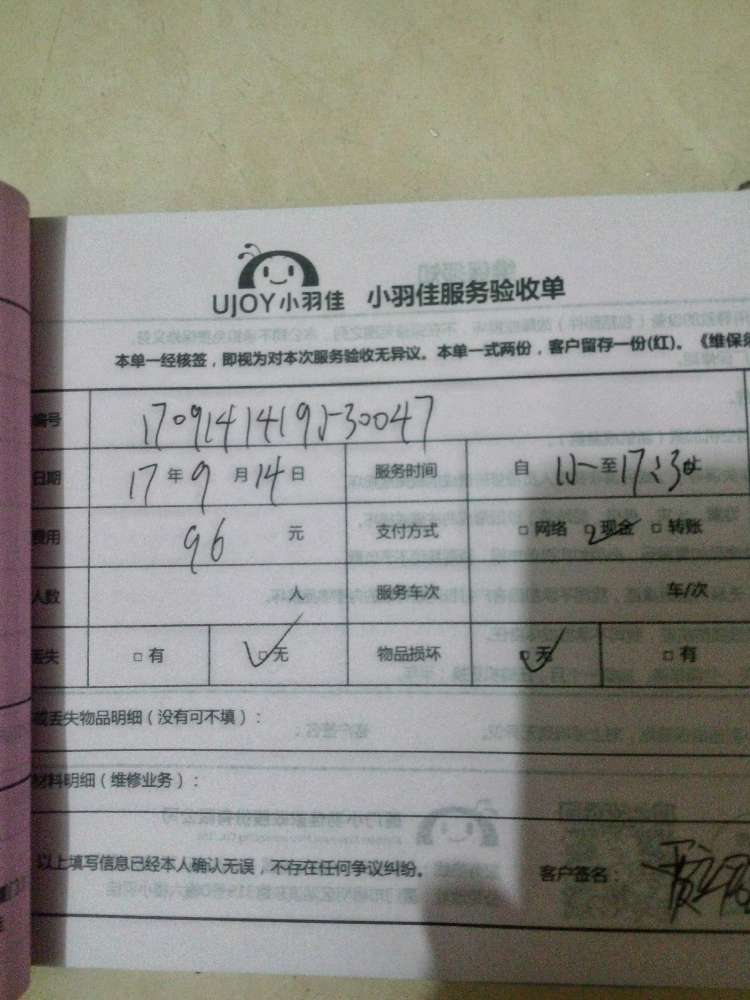 UJOY小羽佳 小羽佳服务验收单
本单一经核签，即视为对本次服务验收无异议。本单一式两份，客户留存一份(红)。《维保须
编号 170914141915-30047
日期 17年9月14日 服务时间 自 15-至17:30止
费用 96 元 支付方式 □网络 □现金 □转账
人数 人 服务车次 车/次
丢失 □有 □无 物品损坏 □无 □有
或丢失物品明细（没有可不填）：
材料明细（维修业务）：
以上填写信息已经本人确认无误，不存在任何争议纠纷。 客户签名：